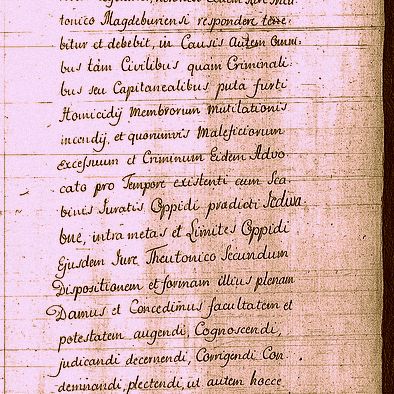 tonico Magdeburiensi respondere tene
bitur et debebit, in Causis Autem Omni.
bus tàm Civilibus quam Criminali
bus seu Capitanealibus, puta furti
Homicidÿ Membrorum Mutilationis
incendÿ, et quorumvis Maleficiorum
Excessuum et Criminum Eidem Advo
cato pro Tempore existenti cum Sca
binis Juratis Oppidi prædicti Sediva
bne, intra metas et Limites Oppidi
Ejusdem Jure Theutonico Secundum
Dispositionem et formam illius plenam
Damus et Concedimus facultatem et
potestatem augendi, Cognoscendi,
judicandi decernendi, Corrigendi Con
demnandi, plectendi, ut autem hocce